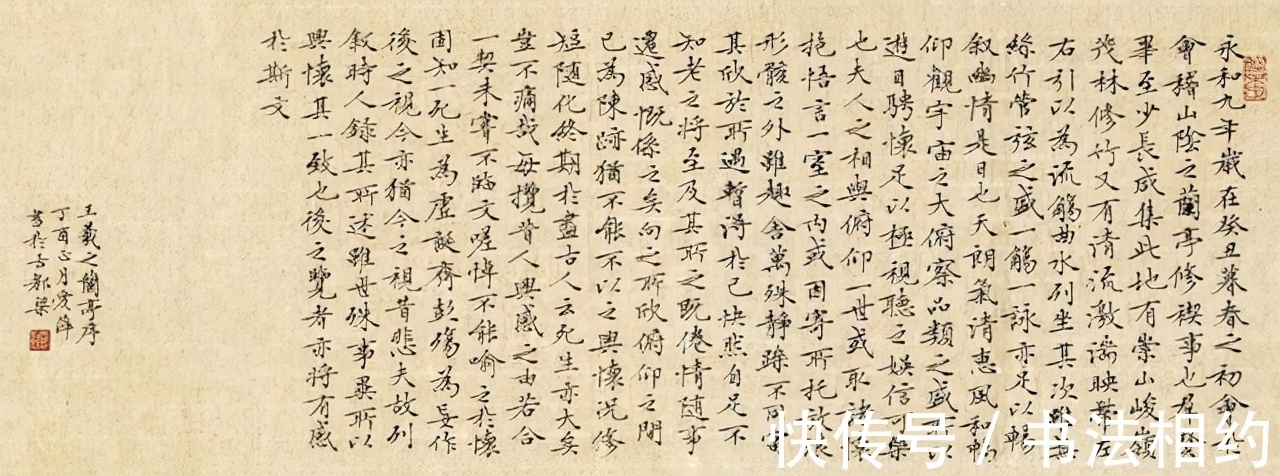 永和九年歲在癸丑暮春之初會
會稽山陰之蘭亭修禊事也群賢
畢至少長咸集此地有崇山峻嶺
茂林修竹又有清流激湍映帶左
右引以為流觴曲水列坐其次雖無
絲竹管弦之盛一觴一詠亦足以暢
敘幽情是日也天朗氣清惠風和暢
仰觀宇宙之大俯察品類之盛所以
遊目騁懷足以極視聽之娛信可樂
也夫人之相與俯仰一世或取諸懷
抱悟言一室之內或因寄所托放浪
形骸之外雖趣舍萬殊靜躁不同當
其欣於所遇暫得於己快然自足不
知老之將至及其所之既倦情隨事
遷感慨係之矣向之所欣俯仰之間
已為陳跡猶不能不以之興懷況修
短隨化終期於盡古人云死生亦大矣
豈不痛哉每攬昔人興感之由若合
一契未嘗不臨文嗟悼不能喻之於懷
固知一死生為虛誕齊彭殤為妄作
後之視今亦猶今之視昔悲夫故列
敘時人錄其所述雖世殊事異所以
興懷其一致也後之覽者亦將有感
於斯文
王羲之蘭亭序
丁酉正月愛萍
書於古都梁
快传号 / 书法相约